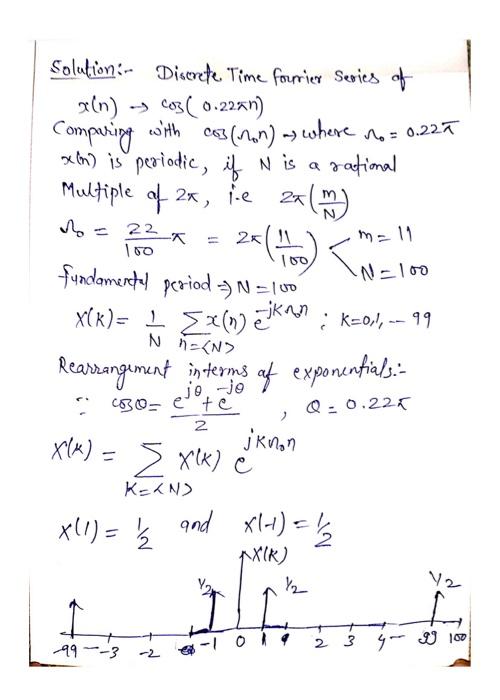 Solution:- Discrete Time fourrier Series of
x(n) → cos(0.22πn)
Comparing with cos(Ω₀n) → where Ω₀ = 0.22π
x(n) is periodic, if N is a rational
Multiple of 2π, i.e 2π(m/N)
Ω₀ = 22/100 π = 2π(11/100) m = 11
N = 100
fundamental period ⇒ N = 100
X(k) = 1/N Σ x(n) e^-jkΩ₀n ; K=0,1, -- 99
n=<N>
Rearrangement interms of exponentials:-
∵ cosθ = (e^jθ + e^-jθ)/2 , θ = 0.22π
X(k) = Σ X(k) e^jkΩ₀n
K=<N>
X(1) = 1/2 and X(-1) = 1/2
X(K)
1/2 1/2 1/2
-99 -- -3 -2 -1 0 1 2 3 4 -- 99 100